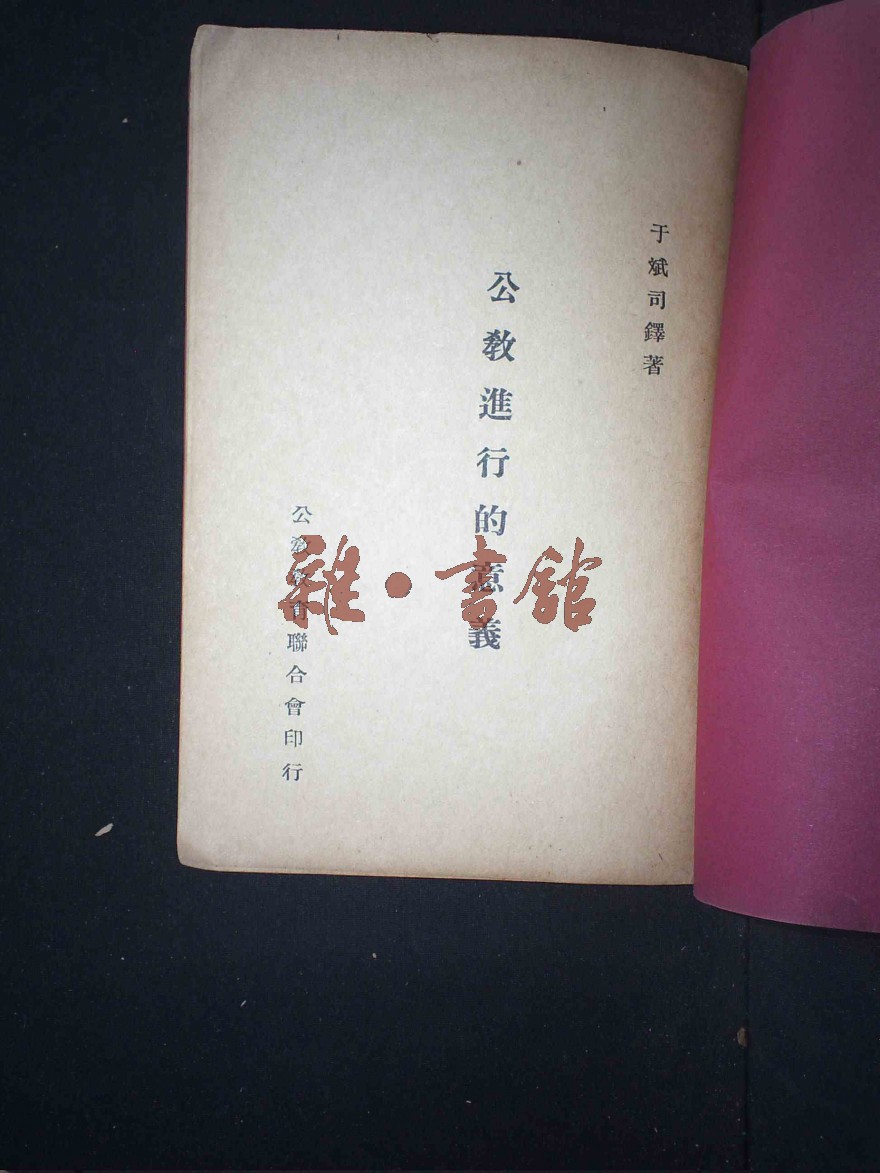 于斌司鐸著
公教進行的意義
公教教育聯合會印行
雜·書館